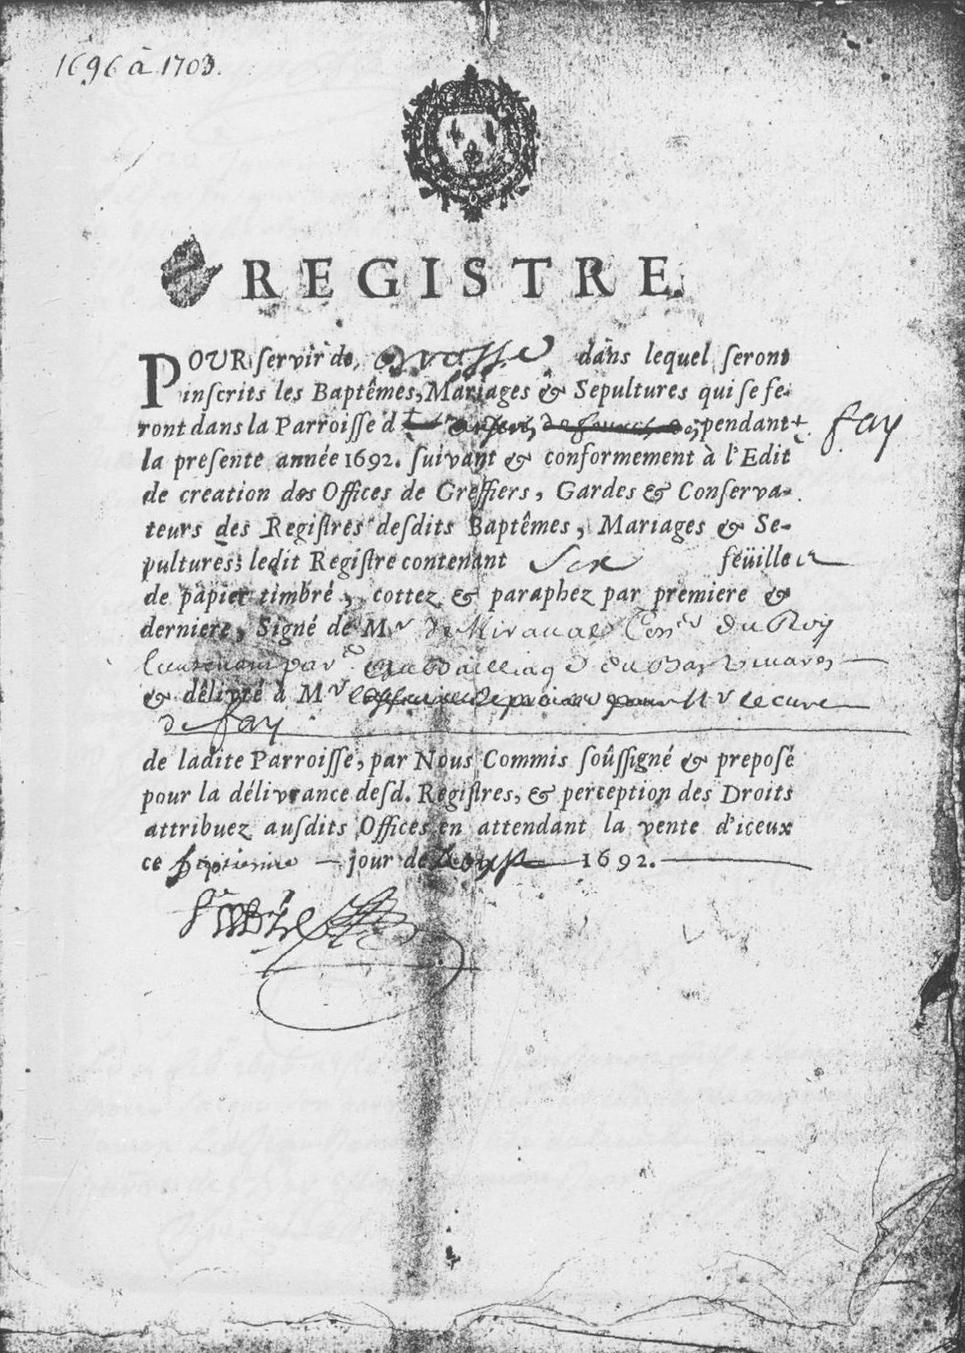 1696 à 1703.
REGISTRE.
POUR servir de dans lequel seront
inscrits les Baptêmes, Mariages & Sepultures qui se fe-
ront dans la Parroisse d pendant fay
la presente année 1692. suivant & conformement à l'Edit
de creation des Offices de Greffiers, Gardes & Conserva-
teurs des Registres desdits Baptêmes, Mariages & Se-
pultures; ledit Registre contenant Six feüilles
de papier timbré, cottez & paraphez par premiere &
derniere, Signé de Mr de Miraval Coner du Roy
lieutenant par au Bailliage du Bas Vivares
& délivré à Mr pour Mr le cure
de fay
de ladite Parroisse, par Nous Commis soûssigné & preposé
pour la délivrance desd. Registres, & perception des Droits
attribuez ausdits Offices en attendant la vente d'iceux
ce septieme jour de Aoust 1692.